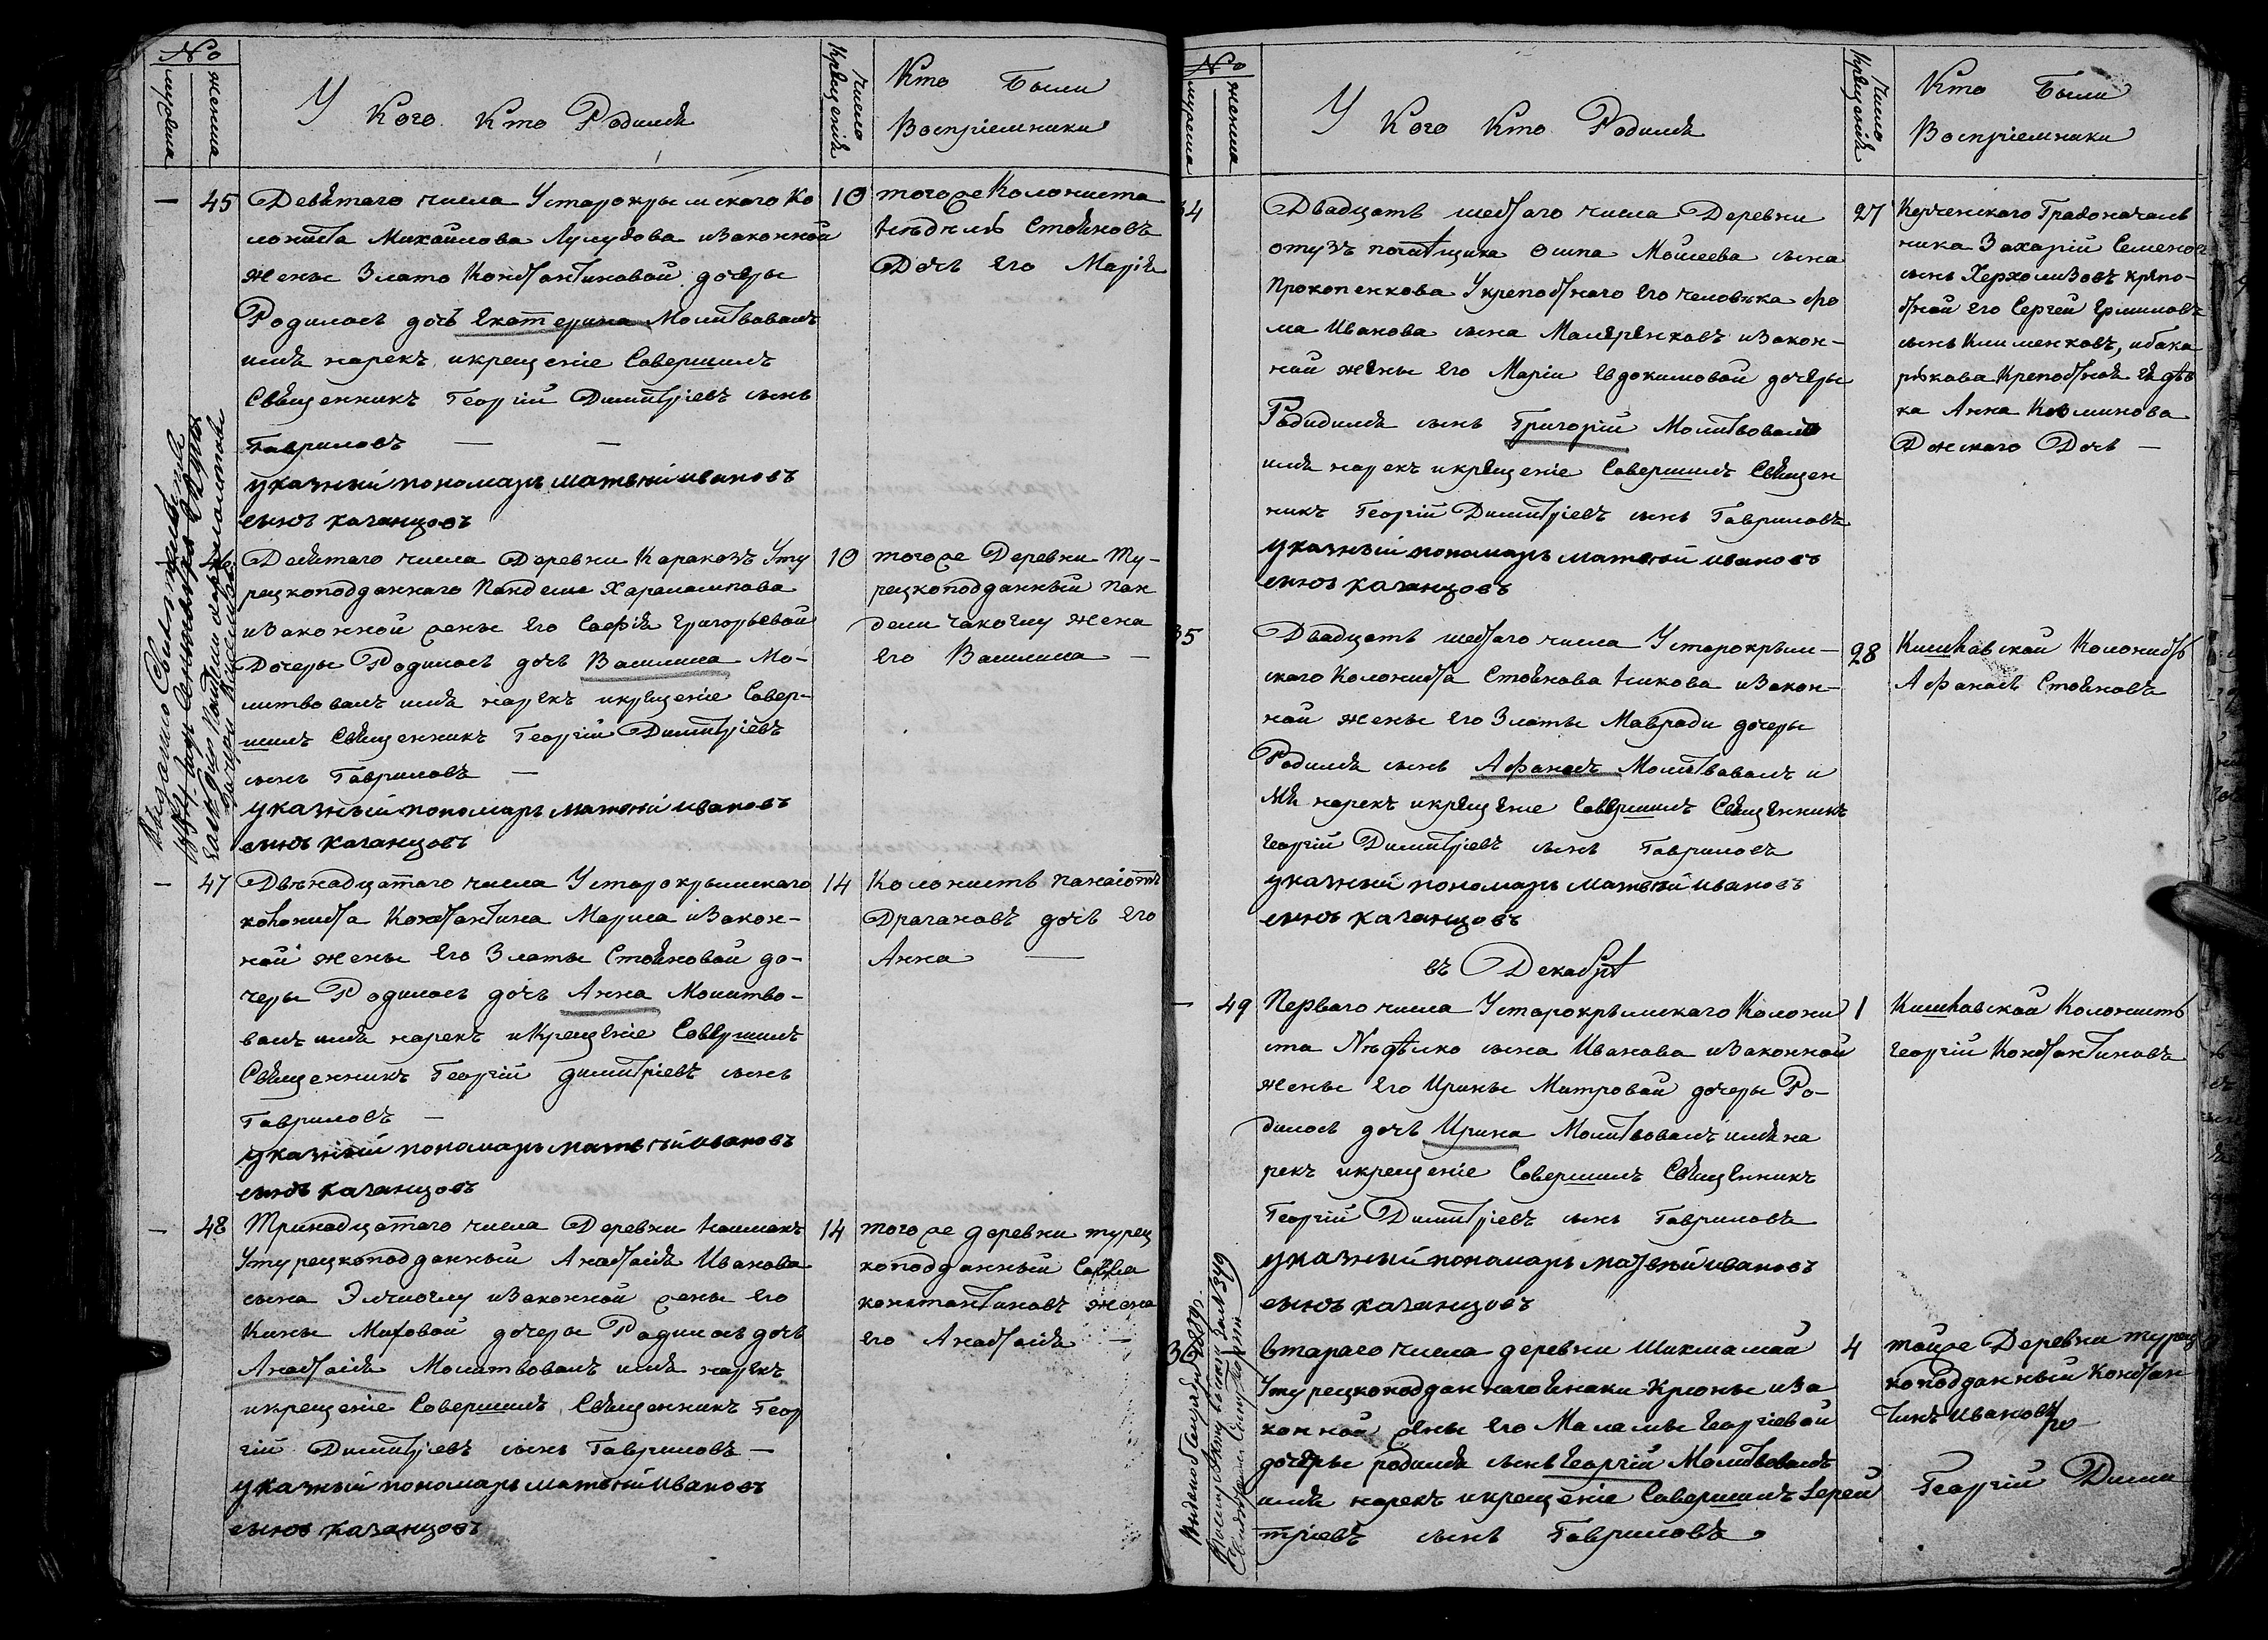 №
мужеска
женска
У Кого Кто Родился
Число Крещений
Кто Были
Восприемники
— 45 Девятаго числа Устарокрымскаго Ко
лониста Михайлова Лулудова изаконной
жены Злато Константиновой дочеры
Родилась дочь Екатерина Молитвовалъ
имя нарекъ икрещение Совершилъ
Священникъ Георгій Димитріевъ сынъ
Гавриловъ — —
указный пономарь матвей ивановъ
сынъ каганцовъ
10 тогоже Колониста
Недялка Стояновъ
Дочь его Марія
46 Девятаго числа Деревни Каракозъ Уту
рецкоподданнаго Панделие Харалампова
изаконной жены его Софія Григорьевой
Дочеры Родилась дочь Василиса Мо-
литвовалъ имя нарекъ икрещение Совер-
шилъ Священникъ Георгій Димитріевъ
сынъ Гавриловъ —
указный пономарь матвей ивановъ
сынъ каганцовъ
10 тогоже Деревни Ту-
рецкоподданный Пан
дели чакоглу жена
его Василиса —
— 47 Двенадцатаго числа Устарокрымскаго
колониста Константина Мариса изакон-
ной жены его Златы Стояновой до-
черы Родилась дочь Анна Молитво-
валъ имя нарекъ икрещение Совершилъ
Священникъ Георгій димитріевъ сынъ
Гавриловъ —
указный пономарь матвей ивановъ
сынъ каганцовъ
14 Колонистъ панаіотъ
Драгановъ дочь его
Анна —
— 48 Тринадцатаго числа Деревни
Утурецкоподданный Анастасія Иванова
сына изаконной жены его
Кины дочеры Родилась дочь
Анастасія Молитвовалъ имя нарекъ
икрещение Совершилъ Священникъ Геор
гій Димитріевъ сынъ Гавриловъ —
указный пономарь матвей ивановъ
сынъ каганцовъ
14 тогоже деревни турец
коподданный Савва
константиновъ жена
его Анастасія —
№
мужеска
женска
У Кого Кто Родился
Число Крещений
Кто Были
Восприемники
34 Двадцать шестаго числа Деревни
отузъ помещика Осипа Моисеева сына
Прокопенкова Укрепостнаго его человека Фо
ма Иванова сына изакон-
ной жены его Маріи Евдокимовой дочеры
Родился сынъ Григорій Молитвовалъ
имя нарекъ икрещение Совершилъ Священ
никъ Георгій Димитріевъ сынъ Гавриловъ
указный пономарь матвей ивановъ
сынъ каганцовъ
27 Керченскаго Градоначаль
ника Захарій Семеновъ
сынъ Херхолизовъ крепо-
стной его Сергей Ермиловъ
сынъ Клименковъ,
Крепостной
ка Анна
Донскаго Дочь —
35 Двадцать шестаго числа Устарокрым-
скаго Колониста Стоянова Никова изакон-
ной жены его Златы Мавради дочеры
Родился сынъ Афанасъ Молитвовалъ и
мя нарекъ икрещение Совершилъ Священникъ
Георгій Димитріевъ сынъ Гавриловъ
указный пономарь матвей ивановъ
сынъ каганцовъ
28 Кишлавской Колонистъ
Афанасъ Стояновъ
въ Декабря
— 49 Перваго числа Устарокрымскаго Колони
ста Недялко сына Иванова изаконной
жены его Ирины Митровой дочеры Ро-
дилась дочь Ирина Молитвовалъ имя на
рекъ икрещение Совершилъ Священникъ
Георгій Димитріевъ сынъ Гавриловъ
указный пономарь матвей ивановъ
сынъ каганцовъ
1 Кишлавской Колонистъ
Георгій Константиновъ
36 втараго числа деревни Шихмамай
Утурецкоподданнаго иза
конной жены его Маламы Георгіевой
дочеры родился сынъ Георгій Молитвовалъ
имя нарекъ икрещение Совершилъ Іерей Георгій Дими
тріевъ сынъ Гавриловъ
4 тойже Деревни турец
коподданный Констан
тинъ Ивановъ